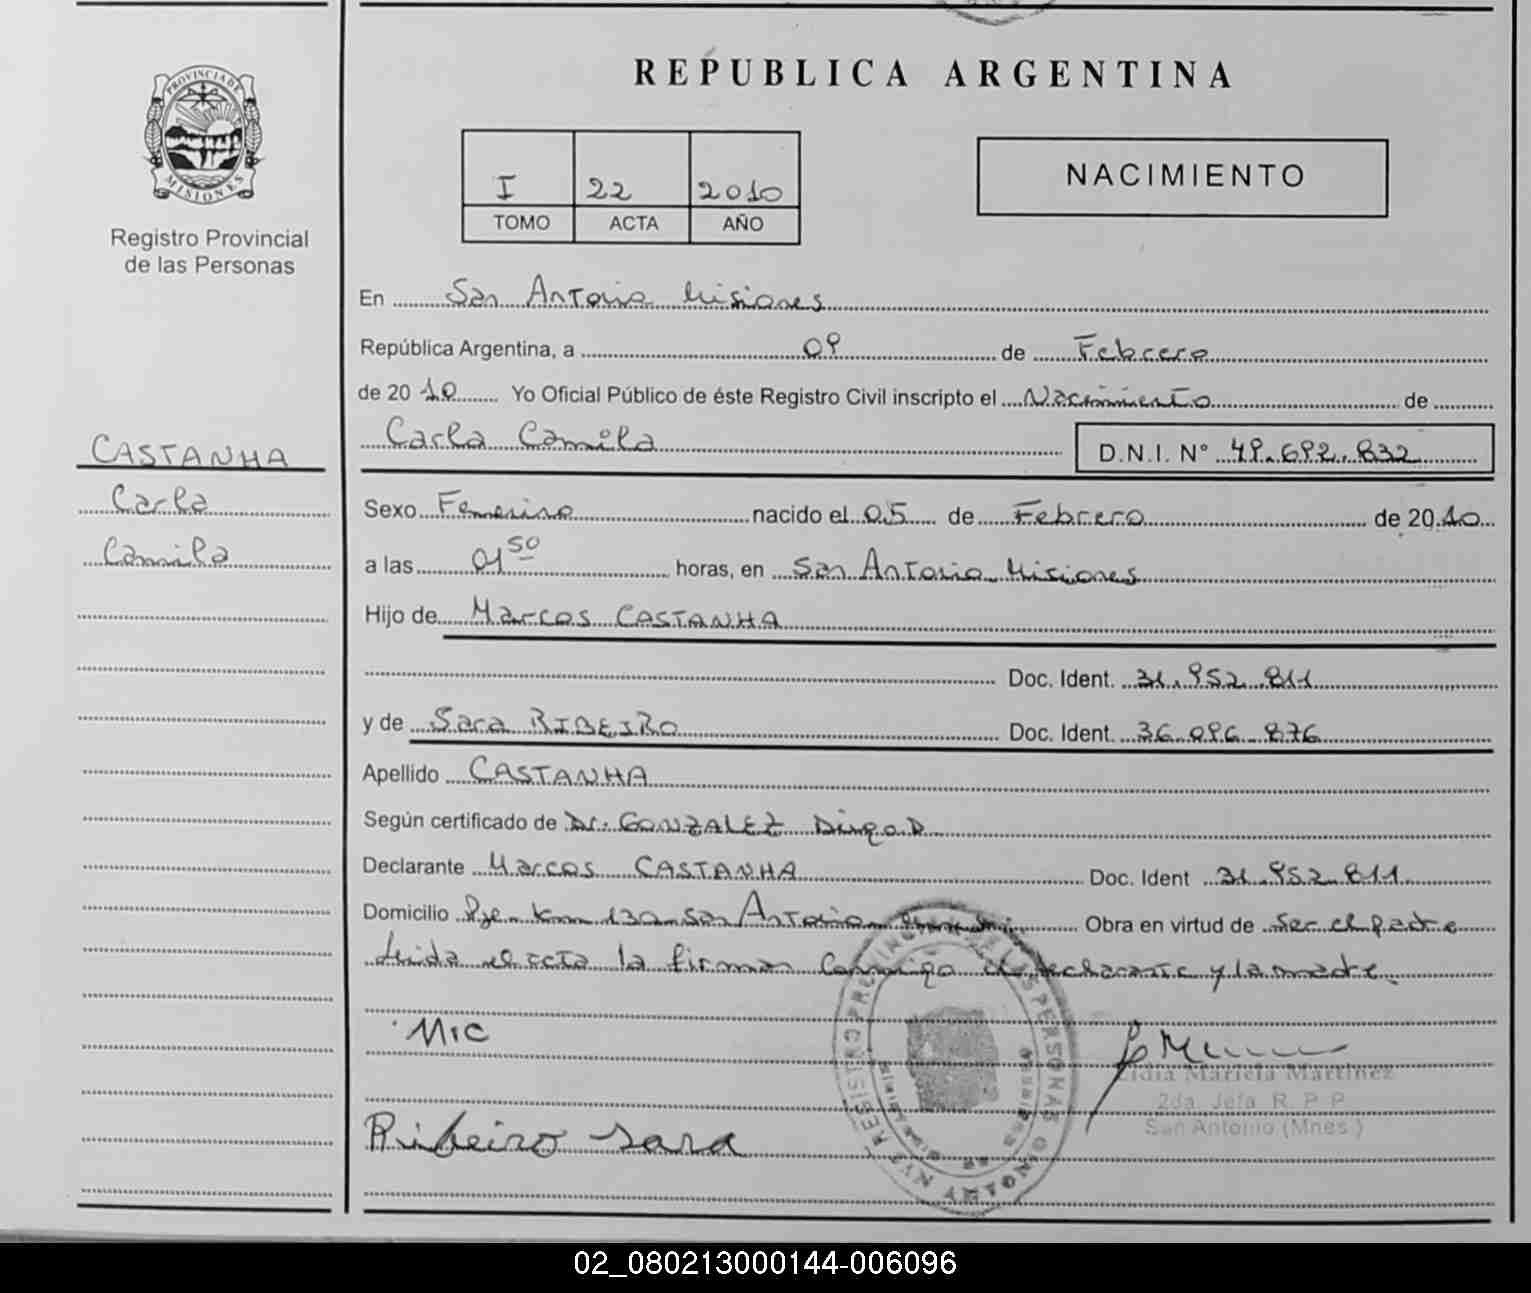 REPUBLICA ARGENTINA
PROVINCIA DE MISIONES
Registro Provincial
de las Personas
I 22 2010
TOMO ACTA AÑO
NACIMIENTO
En San Antonio Misiones
República Argentina, a 09 de Febrero
de 2010 Yo Oficial Público de éste Registro Civil inscripto el Nacimiento de
Carla Camila D.N.I. N° 49.692.832
CASTANHA
Carla
Camila
Sexo Femenino nacido el 05 de Febrero de 2010
a las 01 50 horas, en San Antonio Misiones
Hijo de Marcos CASTANHA
Doc. Ident. 31.952.811
y de Sara RIBEIRO Doc. Ident. 36.096.876
Apellido CASTANHA
Según certificado de Dr. GONZALEZ Diego D
Declarante Marcos CASTANHA Doc. Ident 31.952.811
Domicilio Pje. Km 130 San Antonio Obra en virtud de ser el padre
Leida el acta la firman Conmigo el declarante y la madre.
Mic
Ribeiro Sara
Lidia Mariela Martinez
2da. Jefa R. P. P
San Antonio (Mnes.)
REGISTRO PROVINCIAL DE LAS PERSONAS
02_080213000144-006096